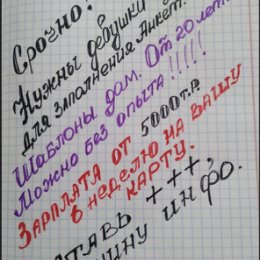 Срочно!
Нужны девушки
для заполнения Анкет.
Шаблоны дам. От 20 лет.
Можно без опыта!!!!!
Зарплата от 5000 т.р.
в неделю на вашу
карту.
тавь +++,
ину инфо.